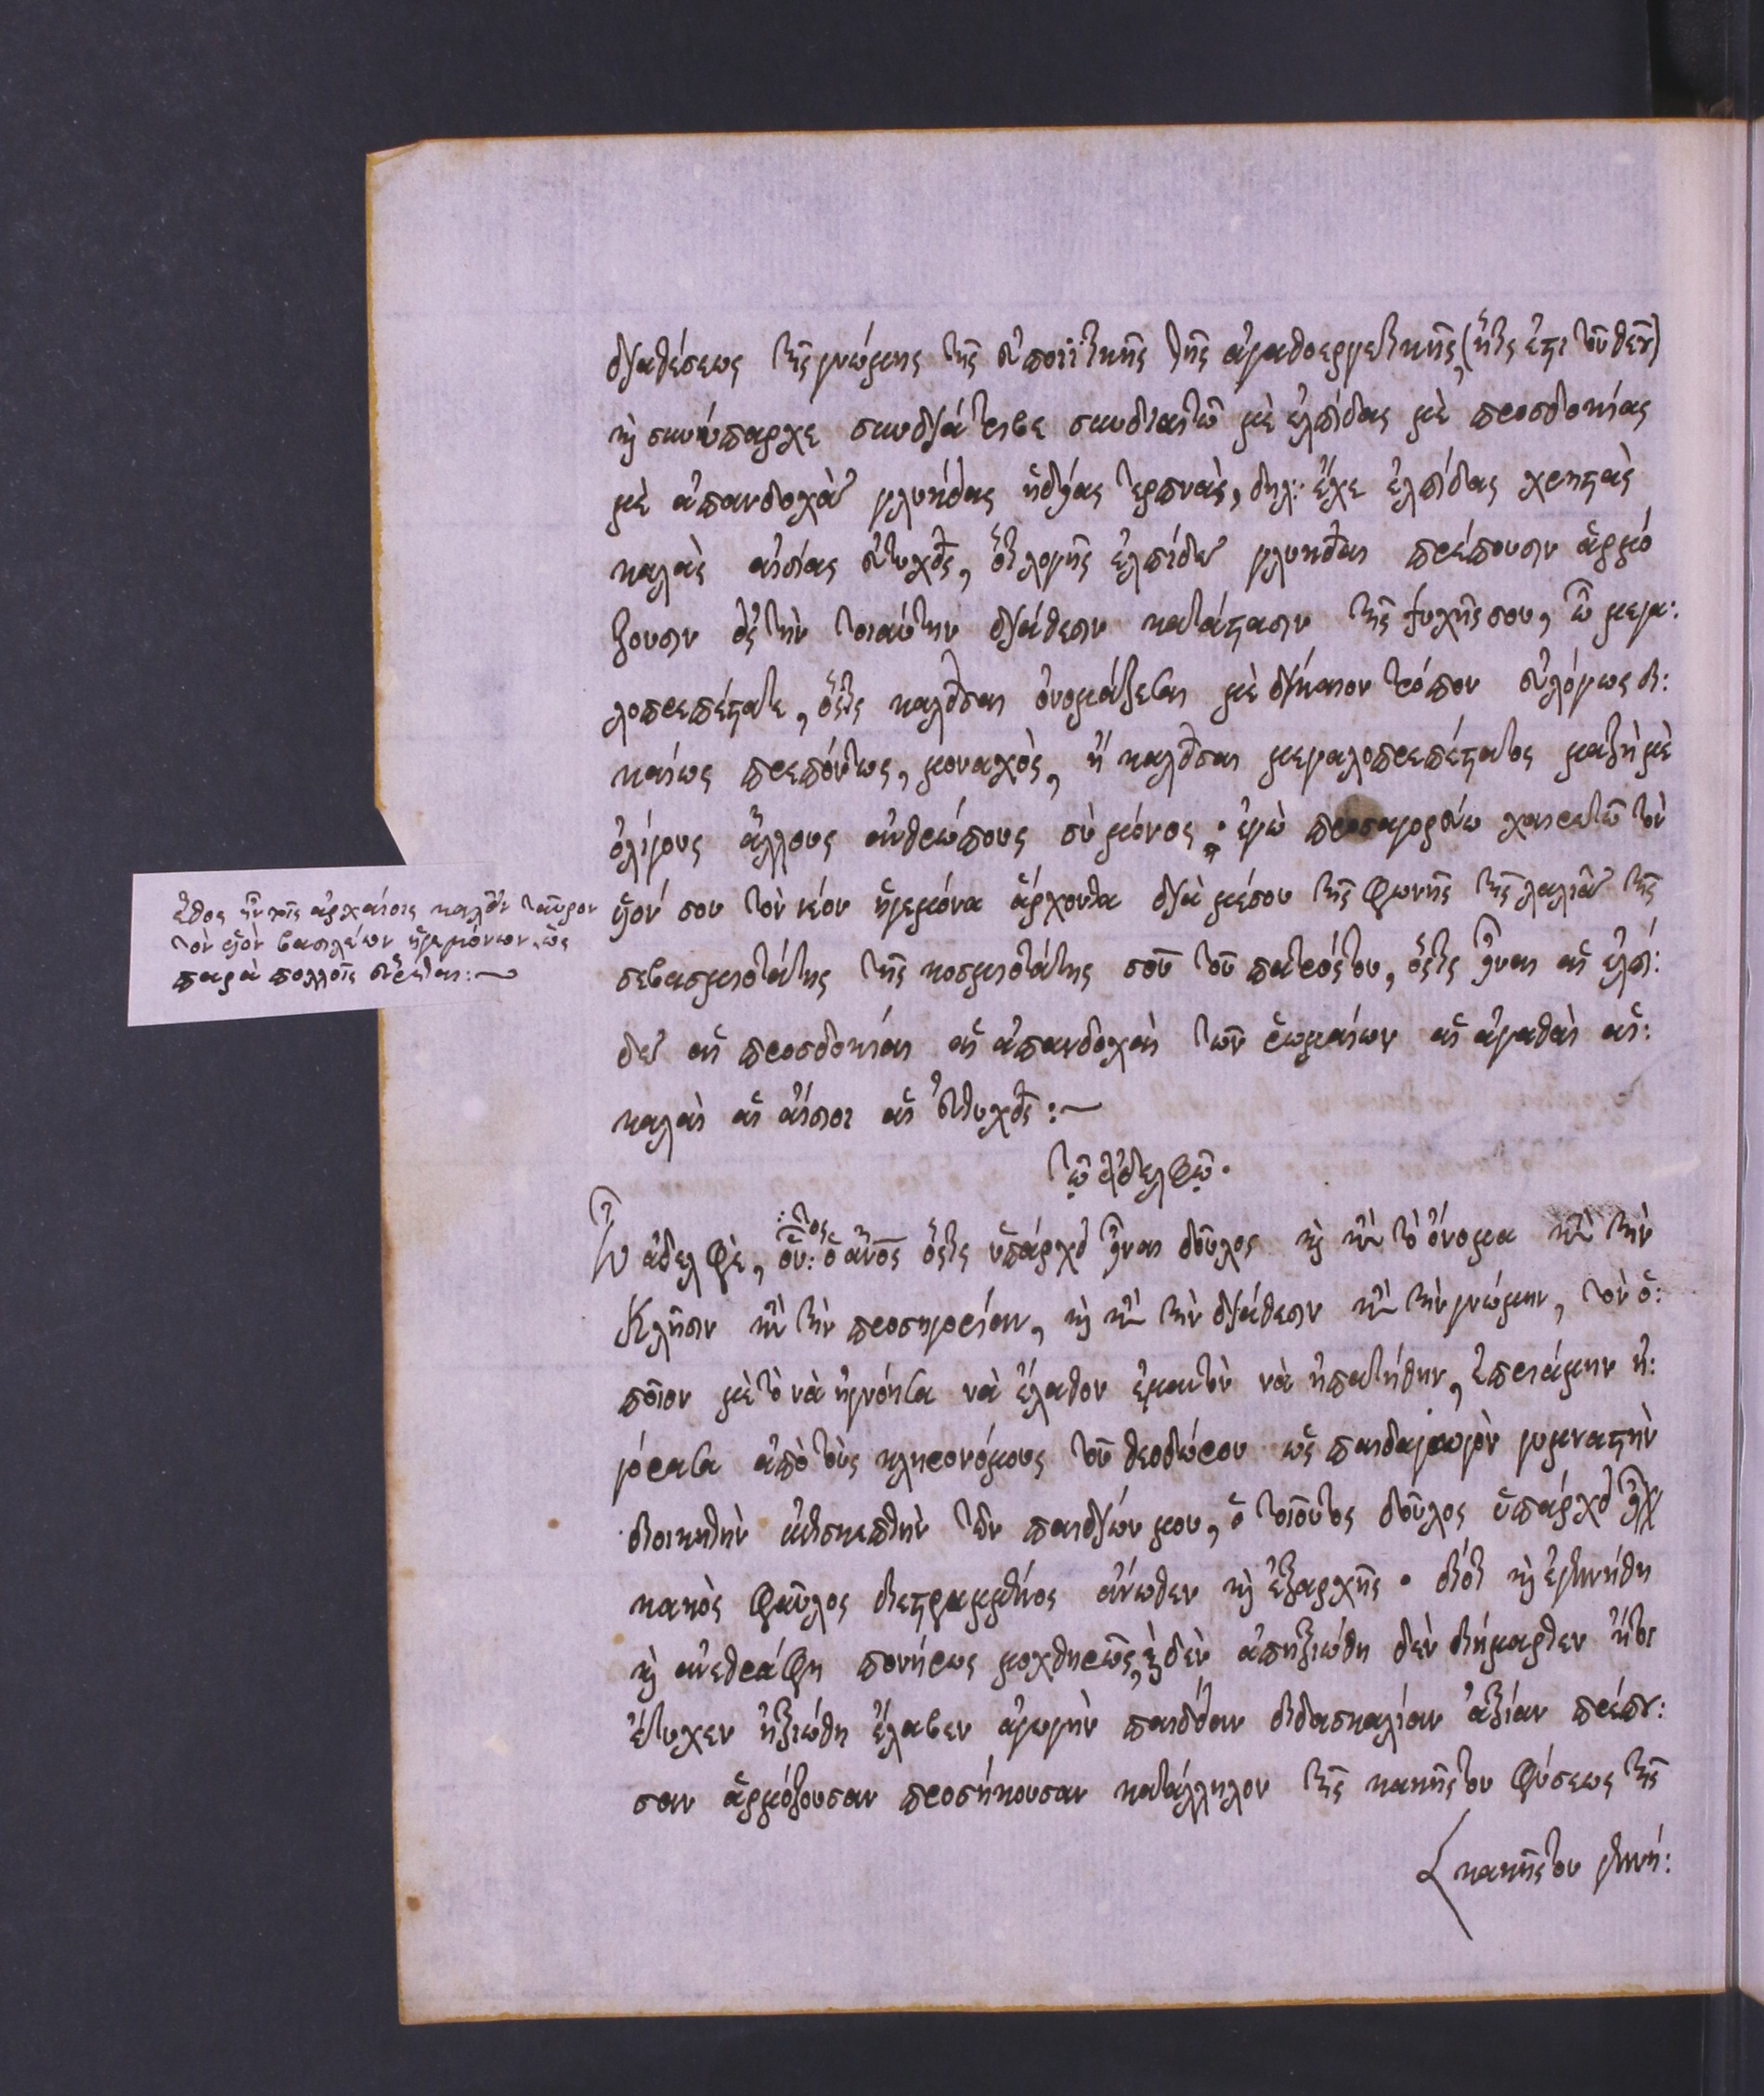 διαθέσεως τῆς γνώμης τῆς εὐποιϊτικῆς τῆς ἀγαθοεργετικῆς (ἥτις ἔστι τοῦ θεοῦ)
καὶ συνύπαρχε συνδιάτριβε συνδιαιτῶ μὲ ἐλπίδας μὲ προσδοκίας
μὲ ἀπανδοχὰς γλυκείας ἡδείας τερπνάς, δηλ: ἔχε ἐλπίδας χρηστὰς
καλὰς αἰσίας εὐτυχεῖς, ὅτι λογῆς ἐλπίδες γλυκεῖαι πρέπουσιν ἁρμό
ζουσιν εἰς τὴν τοιαύτην διάθεσιν κατάστασιν τῆς ψυχῆς σου, ὦ μεγα:
λοπρεπέστατε, ὅστις καλεῖσαι ὀνομάζεσαι μὲ δίκαιον τρόπον εὐλόγως δι:
καίως πρεπόντως, μοναχὸς, ἢ καλεῖσαι μεγαλοπρεπέστατος μαζὴ μὲ
ὀλίγους ἄλλους ἀνθρώπους σὺ μόνος: ἐγὼ προσαγορεύω χαιρετῶ τὸν
υἱόν σου τὸν νέον ἡγεμόνα ἄρχοντα διὰ μέσου τῆς φωνῆς τῆς λαλιᾶς τῆς
σεβασμιοτάτης τῆς κοσμιοτάτης σοῦ τοῦ πατρός του, ὅστις εἶναι αἱ ἐλπί:
δες αἱ προσδοκίαι αἱ ἀπανδοχαὶ τῶν ῥωμαίων αἱ ἀγαθαὶ αἱ:
καλαὶ αἱ αἴσιοι αἱ εὐτυχεῖς:~
ἔθος ἦν τοῖς ἀρχαίοις καλεῖν ταῦρον
τὸν υἱὸν βασιλέων ἡγεμόνων, ὡς
παρὰ πολλοῖς εὕρηται:~
Τῷ ἀδελφῷ.
Ὦ ἀδελφὲ, οὗ:τος ὁ ἄνος ὅστις ὑπάρχει εἶναι δοῦλος καὶ κατὰ τὸ ὄνομα κατὰ τὴν
κλῆσιν κατὰ τὴν προσηγορίαν, καὶ κατὰ τὴν διάθεσιν κατὰ τὴν γνώμην, τὸν ὁ:
ποῖον μὲ τὸ νὰ ἠγνόησα νὰ ἔλαθον ἐμαυτὸν νὰ ἠπατήθην, ἐπριάμην ἠ:
γόρασα ἀπὸ τοὺς κληρονόμους τοῦ θεοδώρου ὡς παιδαγωγὸν γυμναστὴν
διοικητὴν ἐπισκεπτὴν τῶν παιδίων μου, ὁ τοιοῦτος δοῦλος ὑπάρχει
κακὸς φαῦλος διεστραμμένος ἄνωθεν καὶ ἐξαρχῆς· διότι καὶ ἐγεννήθη
καὶ ἀνετράφη πονήρως μοχθηρῶς, καὶ δὲν ἀπηξιώθη δὲν διήμαρτεν ἤτοι
ἔτυχεν ἠξιώθη ἔλαβεν ἀγωγὴν παιδείαν διδασκαλίαν ἀξίαν πρέπου:
σαν ἁρμόζουσαν προσήκουσαν κατάλληλον τῆς κακῆς του φύσεως τῆς
κακῆς του γεννή: